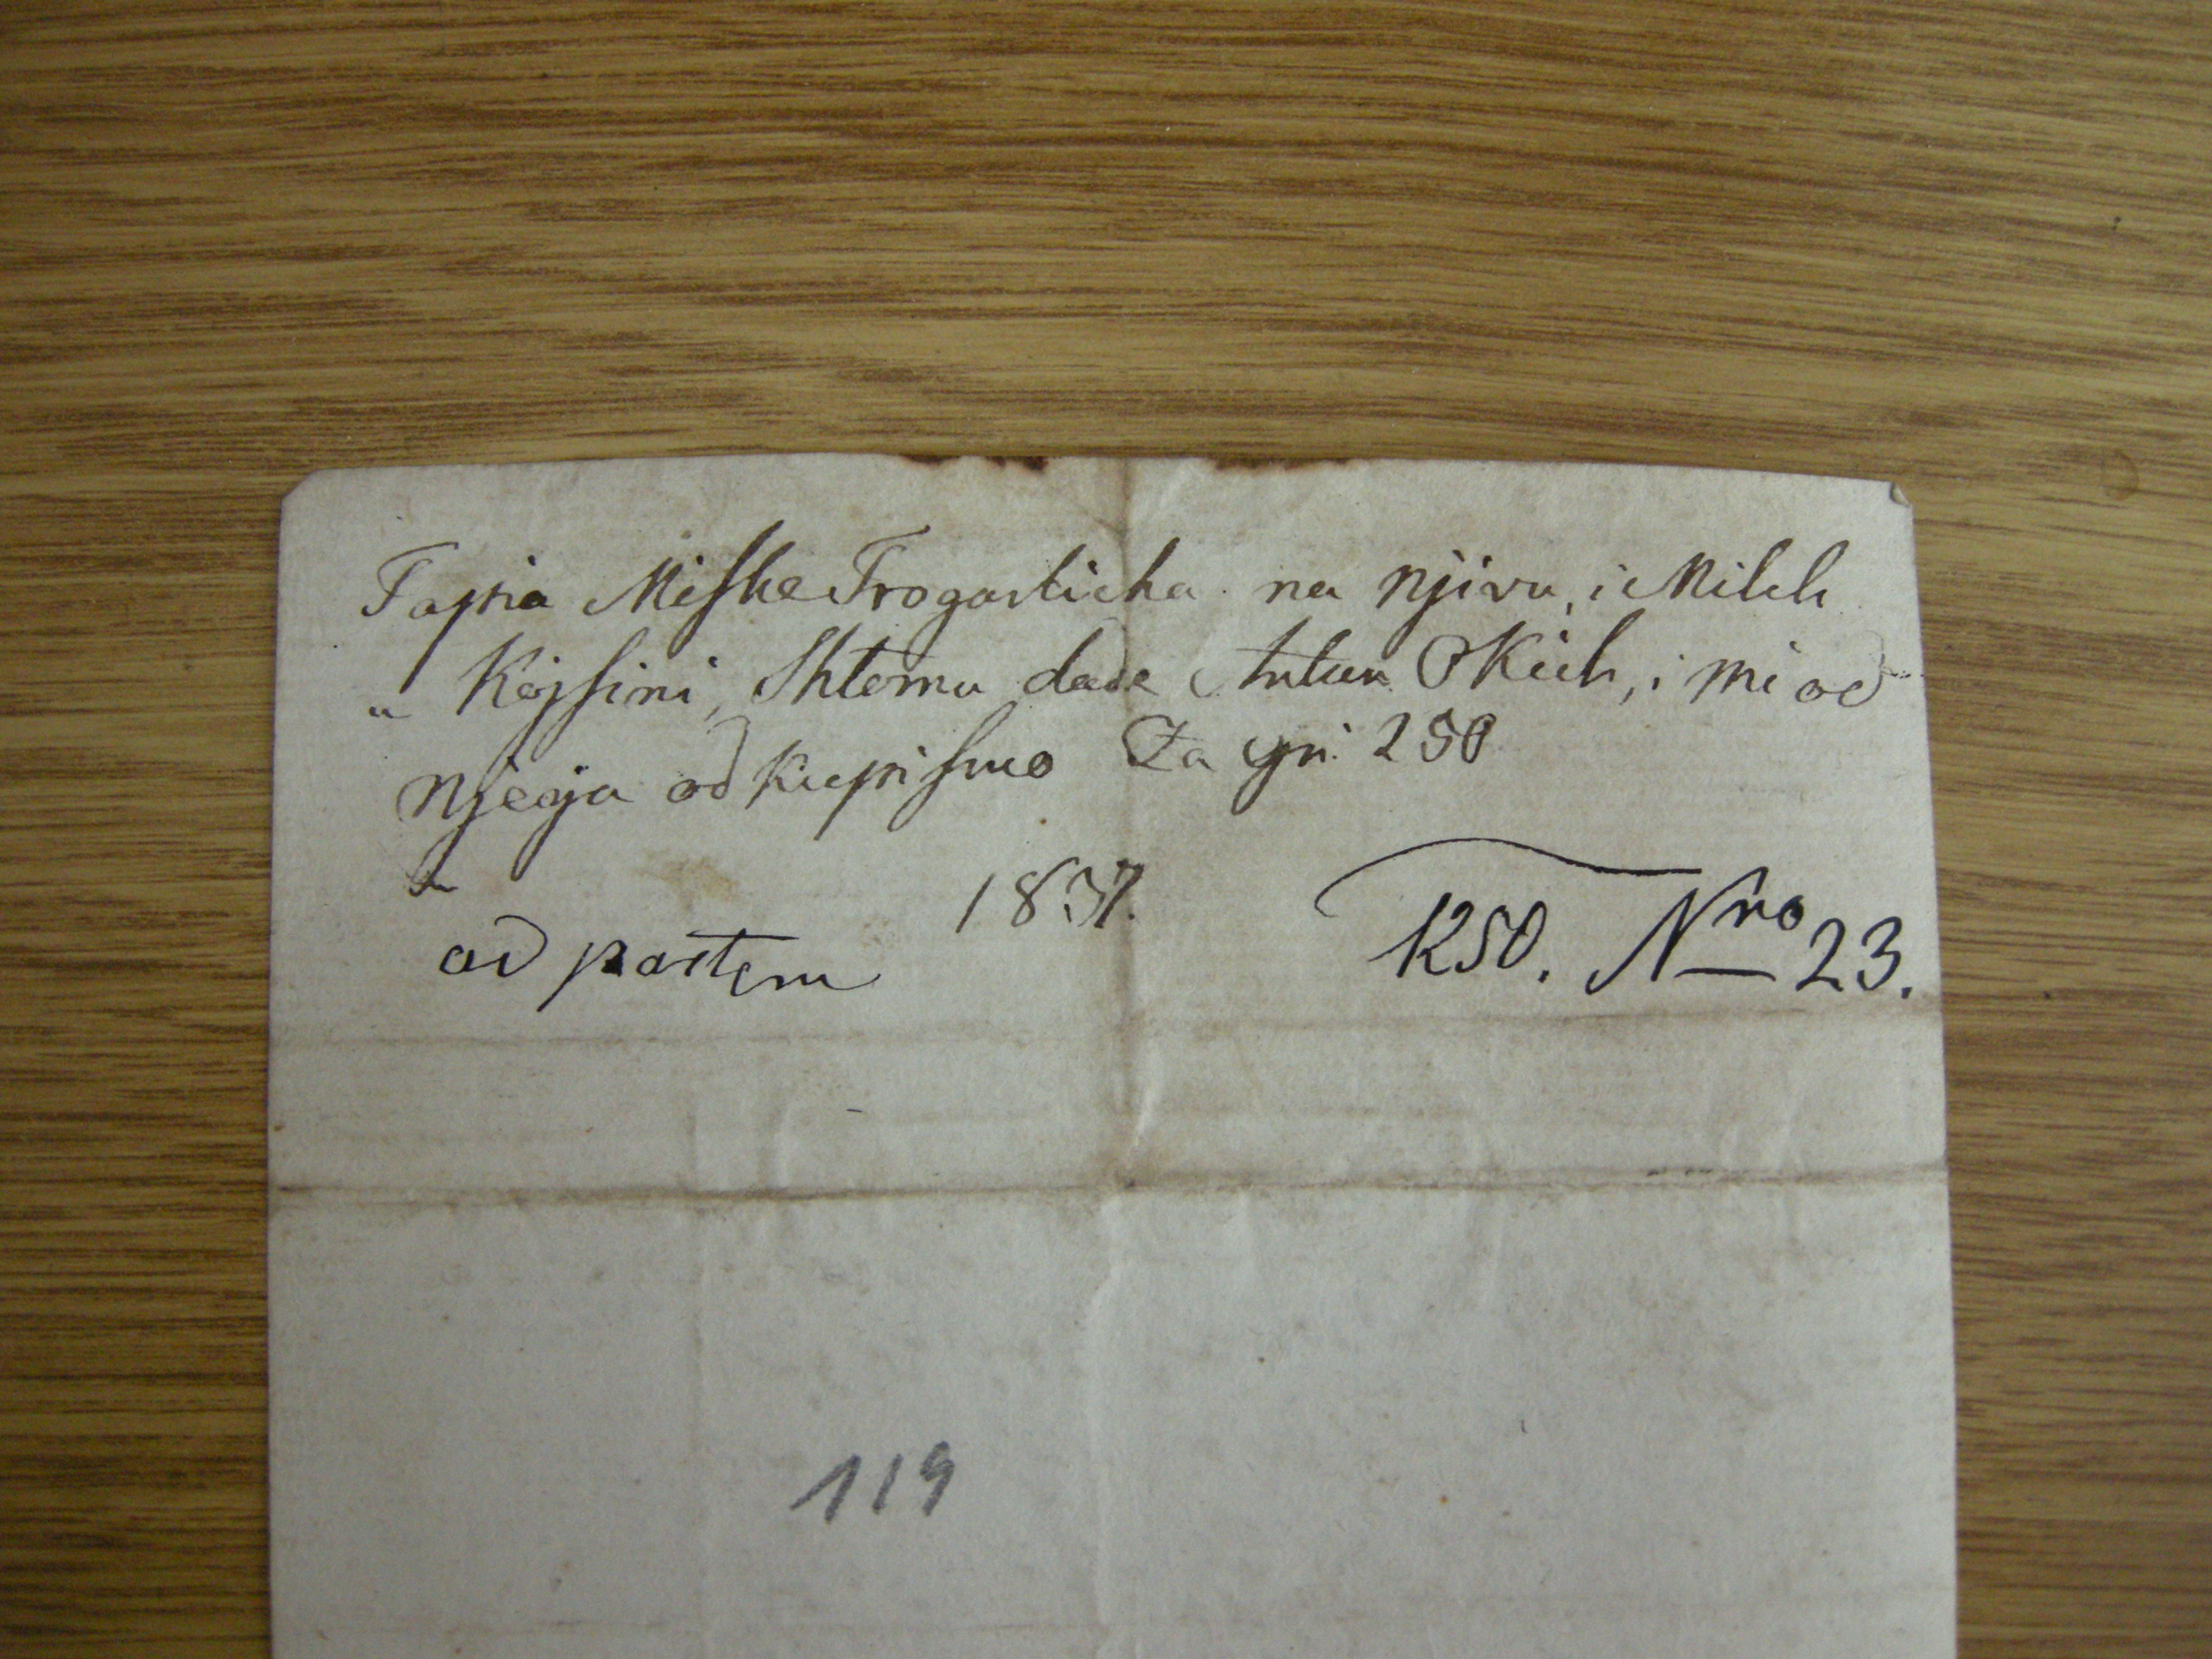 Tapia Miske Trogarlicha na Njivu, i Milch
u Kojsini, Shtomu dade Antun Okich, i mi od
Njega odkupismo Za gri. 250
1837.
ad partem
K50. Nro 23.
119